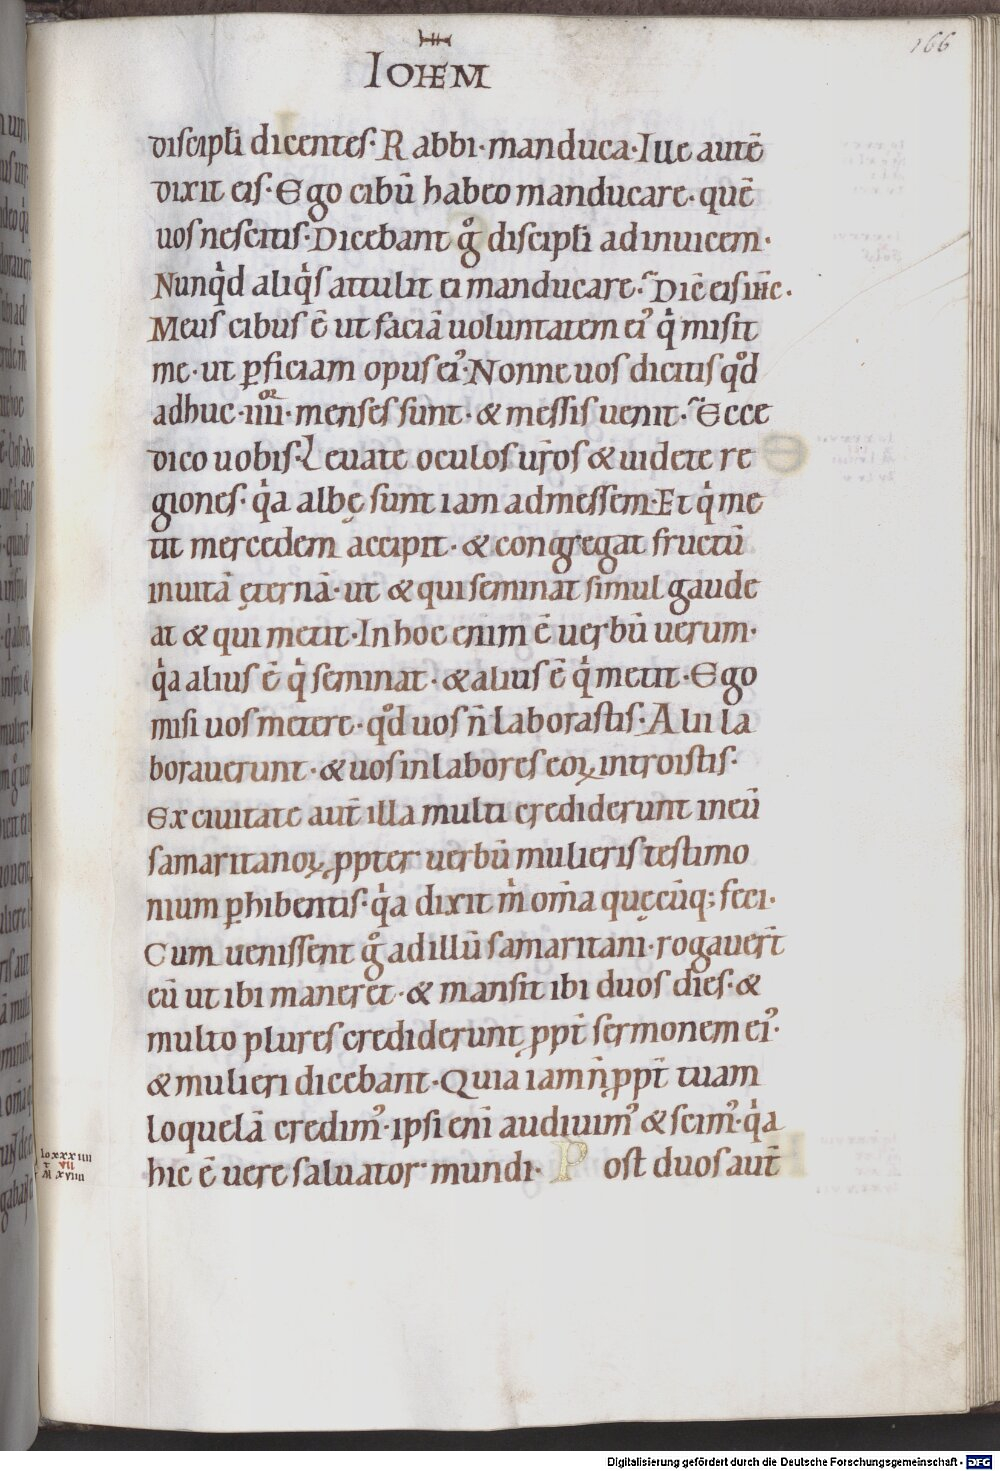 166
IOHEM
discipłi dicentes· Rabbi· manduca· Ille autē
dixit eis· Ego cibū habeo manducare· quē
uos nescitis· Dicebant gͦ discipłi adinuicem·
Nunqͥd aliqͥs attulit ei manducare· Dic̄ eis iħc·
Meus cibus ē ut faciā uoluntatem ei᾽ qͥ misit
me· ut ꝑficiam opus ei᾽· Nonne uos dicitis qͦd
adhuc ·iiiior· menses sunt· & messis uenit· Ecce
dico uobis· Leuate oculos ūros & uidete re
giones· qͥa albę sunt iam ad messem· Et qͥ me
tit mercedem accipit· & congregat fructū
inuitā ęternā· ut & qui seminat simul gaude
at & qui metit· In hoc enim ē uerbū uerum·
qͥa alius ē qͥ seminat· & alius ē qͥ metit· Ego
misi uos metere· qͦd uos n̄ laborastis· Alii la
borauerunt· & uos in labores eoꝝ introistis·
Ex ciuitate aut̄ illa multi crediderunt ineū
samaritanoꝝ ꝓpter uerbū mulieris testimo
nium ꝑhibentis· qͥa dixit mͥ om̄a quęcūq; feci·
Cum uenissent gͦ ad illū samaritani· rogauer̄t
eū ut ibi maneret· & mansit ibi duos dies· &
multo plures crediderunt ꝓpt̄ sermonem ei᾽·
& mulieri dicebant· Quia iam n̄ ꝓpt̄ tuam
loquelā credim᾽· ipsi eni̅ audiuim᾽ & scim᾽· qͥa
hic ē uere saluator mundi· Post duos aut̄
Io xxxiiii
VII
M XVIIII
Digitalisierung gefördert durch die Deutsche Forschungsgemeinschaft - DFG